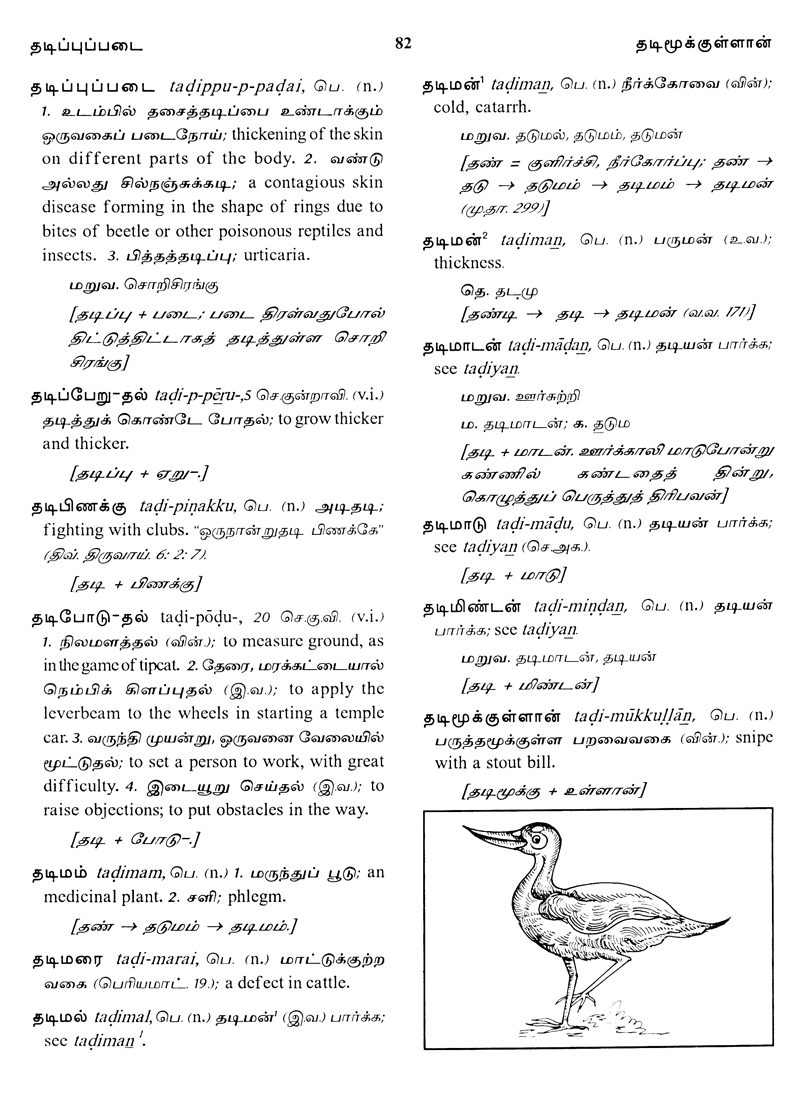 தடிப்புப்படை
82
தடிமூக்குள்ளான்
தடிப்புப்படை taḍippu-p-paḍai, பெ. (n.)
1. உடம்பில் தசைத்தடிப்பை உண்டாக்கும்
ஒருவகைப் படைநோய்; thickening of the skin
on different parts of the body. 2. வண்டு
அல்லது சில்நஞ்சுக்கடி; a contagious skin
disease forming in the shape of rings due to
bites of beetle or other poisonous reptiles and
insects. 3. பித்தத்தடிப்பு; urticaria.
மறுவ. சொறிசிரங்கு
[தடிப்பு + படை; படை திரள்வதுபோல்
திட்டுத்திட்டாகத் தடித்துள்ள சொறி
சிரங்கு]
தடிப்பேறு-தல் taḍi-p-pēru-,5 செ.குன்றாவி. (v.i.)
தடித்துக் கொண்டே போதல்; to grow thicker
and thicker.
[தடிப்பு + ஏறு-.]
தடிபிணக்கு taḍi-piṇakku, பெ. (n.) அடிதடி;
fighting with clubs. “ஒருநான்றுதடி பிணக்கே”
(திவ். திருவாய். 6: 2: 7).
[தடி + பிணக்கு]
தடிபோடு-தல் taḍi-pōḍu-, 20 செ.கு.வி. (v.i.)
1. நிலமளத்தல் (வின்.); to measure ground, as
in the game of tipcat. 2. தேரை, மரக்கட்டையால்
நெம்பிக் கிளப்புதல் (இ.வ.); to apply the
leverbeam to the wheels in starting a temple
car. 3. வருந்தி முயன்று, ஒருவனை வேலையில்
மூட்டுதல்; to set a person to work, with great
difficulty. 4. இடையூறு செய்தல் (இ.வ.); to
raise objections; to put obstacles in the way.
[தடி + போடு-.]
தடிமம் taḍimam, பெ. (n.) 1. மருந்துப் பூடு; an
medicinal plant. 2. சளி; phlegm.
[தண் → தடுமம் → தடிமம்.]
தடிமரை taḍi-marai, பெ. (n.) மாட்டுக்குற்ற
வகை (பெரியமாட். 19.); a defect in cattle.
தடிமல் taḍimal, பெ. (n.) தடிமன்¹ (இ.வ.) பார்க்க;
see taḍimaṉ ¹.
தடிமன்¹ taḍimaṉ, பெ. (n.) நீர்க்கோவை (வின்);
cold, catarrh.
மறுவ. தடுமல், தடுமம், தடுமன்
[தண் = குளிர்ச்சி, நீர்கோர்ப்பு; தண் →
தடு → தடுமம் → தடிமம் → தடிமன்
(மு.தா. 299)]
தடிமன்² taḍimaṉ, பெ. (n.) பருமன் (உ.வ.);
thickness.
தெ. தட்மு
[தண்டி → தடி → தடிமன் (வ.வ. 171)]
தடிமாடன் taḍi-māḍaṉ, பெ. (n.) தடியன் பார்க்க;
see taḍiyaṉ.
மறுவ. ஊர்சுற்றி
ம. தடிமாடன்; க. தடும
[தடி + மாடன். ஊர்க்காலி மாடுபோன்று
கண்ணில் கண்டதைத் தின்று,
கொழுத்துப் பெருத்துத் திரிபவன்]
தடிமாடு taḍi-māḍu, பெ. (n.) தடியன் பார்க்க;
see taḍiyaṉ (செ.அக.).
[தடி + மாடு]
தடிமிண்டன் taḍi-miṇḍaṉ, பெ. (n.) தடியன்
பார்க்க; see taḍiyaṉ.
மறுவ. தடிமாடன், தடியன்
[தடி + மிண்டன்]
தடிமூக்குள்ளான் taḍi-mūkkuḷḷāṉ, பெ. (n.)
பருத்தமூக்குள்ள பறவைவகை (வின்.); snipe
with a stout bill.
[தடிமூக்கு + உள்ளான்]